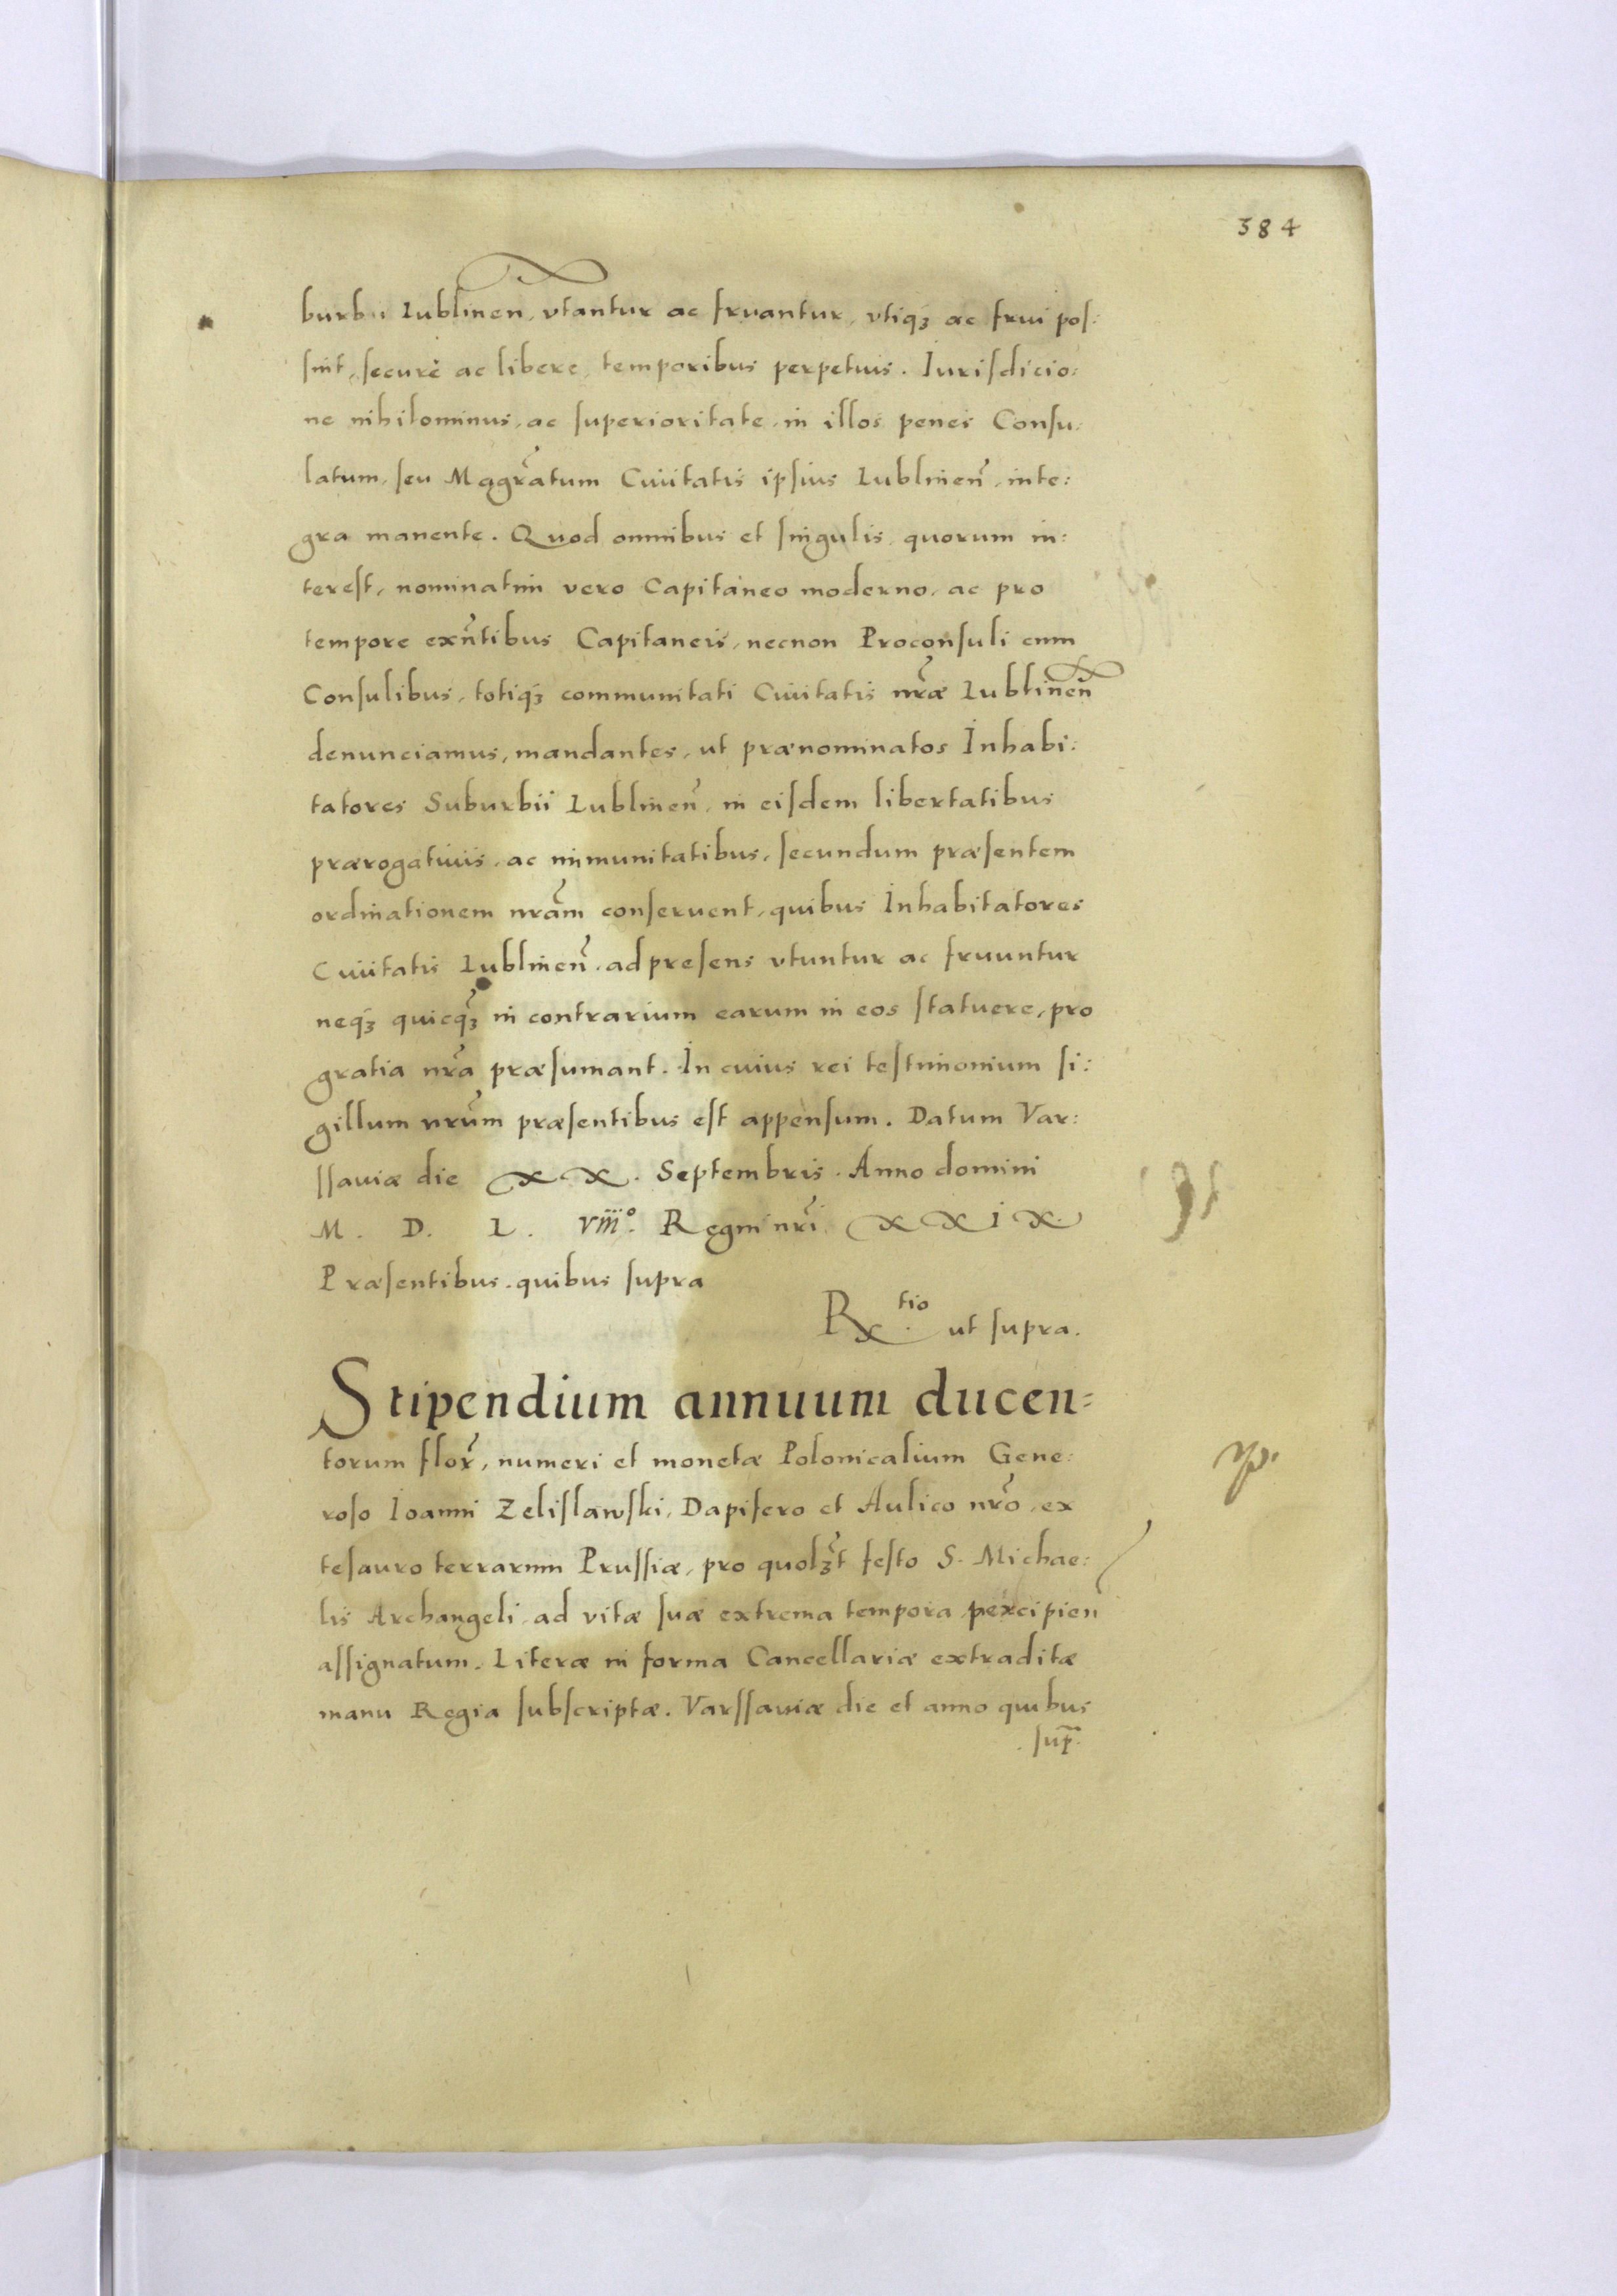 384
burbii Lublinen̄, vtantur ac fruantur, vtiqʒ ac frui pos:
sint, securè ac libere, temporibus perpetuis. Iurisdicio:
ne nihilominus, ac superioritate, in illos penes Consu:
latum, seu Mgr̃atum Ciuitatis ipsius Lublinen̄, inte:
gra manente. Quod omnibus et singulis, quorum in:
terest, nominatim vero Capitaneo moderno, ac pro
tempore exn̄tibus Capitaneis, necnon Proconsuli cum
Consulibus, totiqʒ communitati Ciuitatis nr̃æ Lublinen̄
denunciamus, mandantes, ut prænominatos Inhabi:
tatores Suburbii Lublinen̄, in eisdem libertatibus
prærogatiuis, ac immunitatibus, secundum præsentem
ordinationem nr̃am conseruent, quibus Inhabitatores
Ciuitatis Lublinen̄, ad presens vtuntur ac fruuntur
neqʒ quicqʒ̃ in contrarium earum in eos statuere, pro
gratia nr̃a præsumant. In cuius rei testimonium si:
gillum nr̃um præsentibus est appensum. Datum Var:
ssauiæ die XX. Septembris. Anno domini
M. D. L. viiiº. Regni nr̃i XXIX.
Præsentibus. quibus supra
Rx.tio ut supra.
Stipendium annuum ducen=
torum flor̃, numeri et monetæ Polonicalium Gene:
roso Ioanni Zelislawski, Dapifero et Aulico nr̃o, ex
tesauro terrarum Prussiæ, pro quolʒt̃ festo S. Michae:
lis Archangeli, ad vitæ suæ extrema tempora percipien̄
assignatum. Literæ in forma Cancellariæ extraditæ
manu Regia subscriptæ. Varssauiæ die et anno quibus
sup̃.